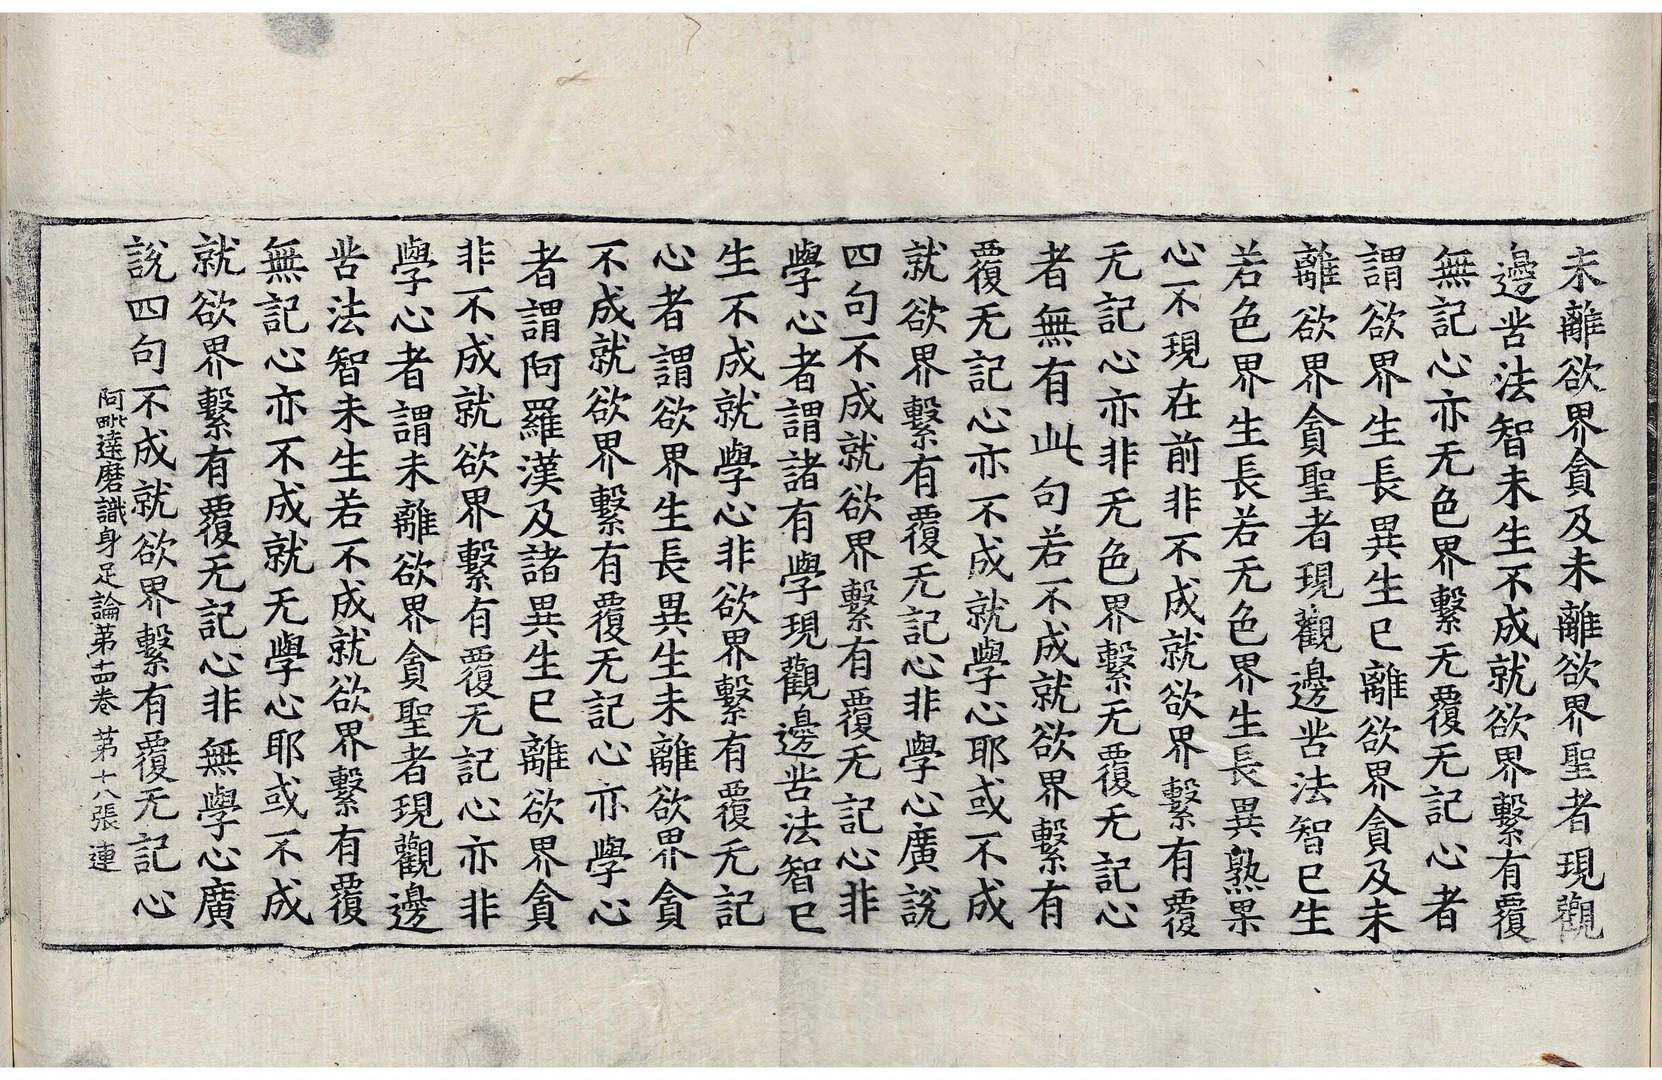 未離欲界貪及未離欲界聖者現觀
邊苦法智未生不成就欲界繫有覆
無記心亦无色界繫无覆无記心者
謂欲界生長異生已離欲界貪及未
離欲界貪聖者現觀邊苦法智已生
若色界生長若无色界生長異熟果
心不現在前非不成就欲界繫有覆
无記心亦非无色界繫无覆无記心
者無有此句若不成就欲界繫有
覆无記心亦不成就學心耶或不成
就欲界繫有覆无記心非學心廣說
四句不成就欲界繫有覆无記心非
學心者謂諸有學現觀邊苦法智已
生不成就學心非欲界繫有覆无記
心者謂欲界生長異生未離欲界貪
不成就欲界繫有覆无記心亦學心
者謂阿羅漢及諸異生已離欲界貪
非不成就欲界繫有覆无記心亦非
學心者謂未離欲界貪聖者現觀邊
苦法智未生若不成就欲界繫有覆
無記心亦不成就无學心耶或不成
就欲界繫有覆无記心非無學心廣
說四句不成就欲界繫有覆无記心
阿毗達磨識身足論第十四卷 第十八張 連